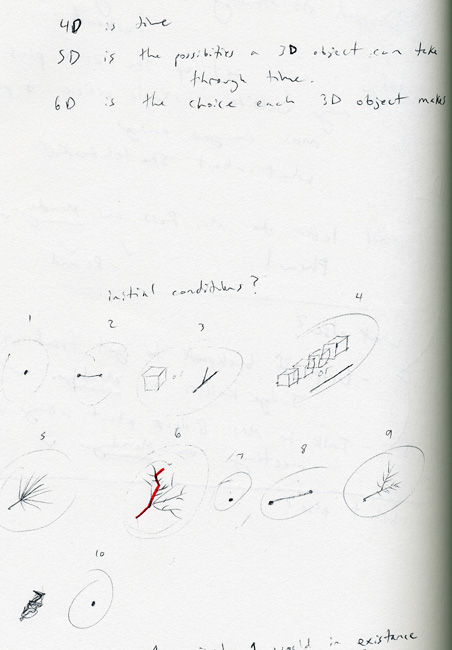 4D is time
5D is the possibities a 3D object can take
through time.
6D is the choice each 3D object makes
initial conditions?
1 2 3 4
or
or
5 6 7 8 9
10
world in existance